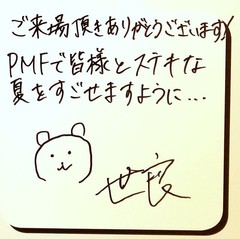 ご来場頂きありがとうございます♪
PMFで皆様とステキな
夏をすごせますように...
世良